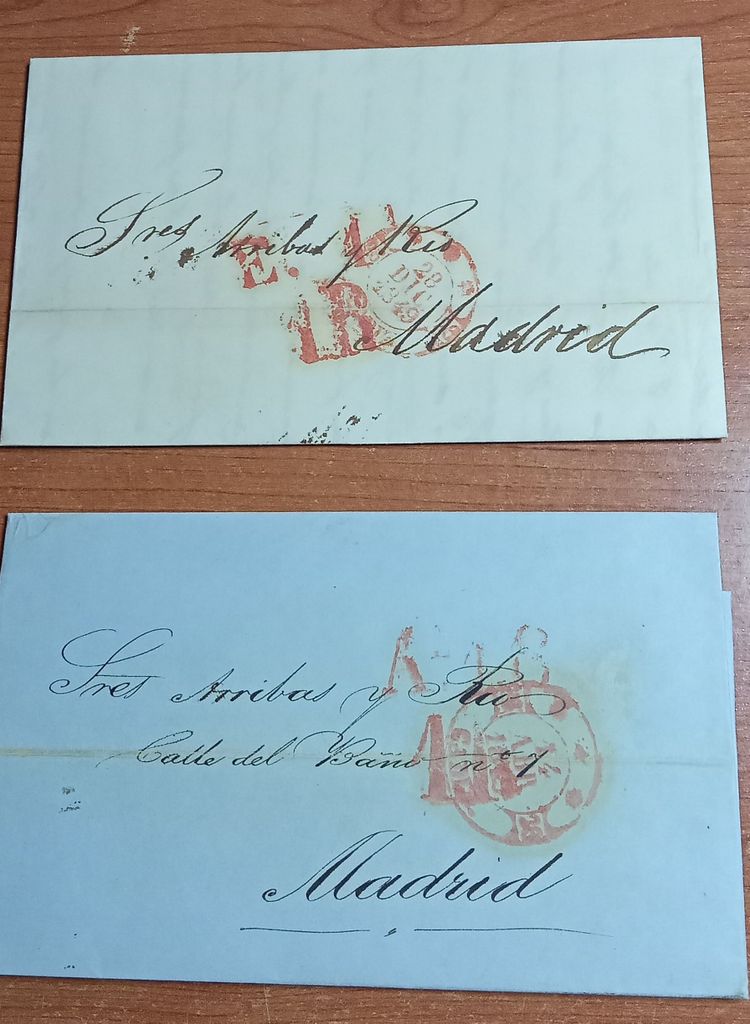 Sres Arribas y Rio
1R
28
DIC
1849
Madrid
Sres Arribas y Rio
Calle del Baño nº 7
Madrid